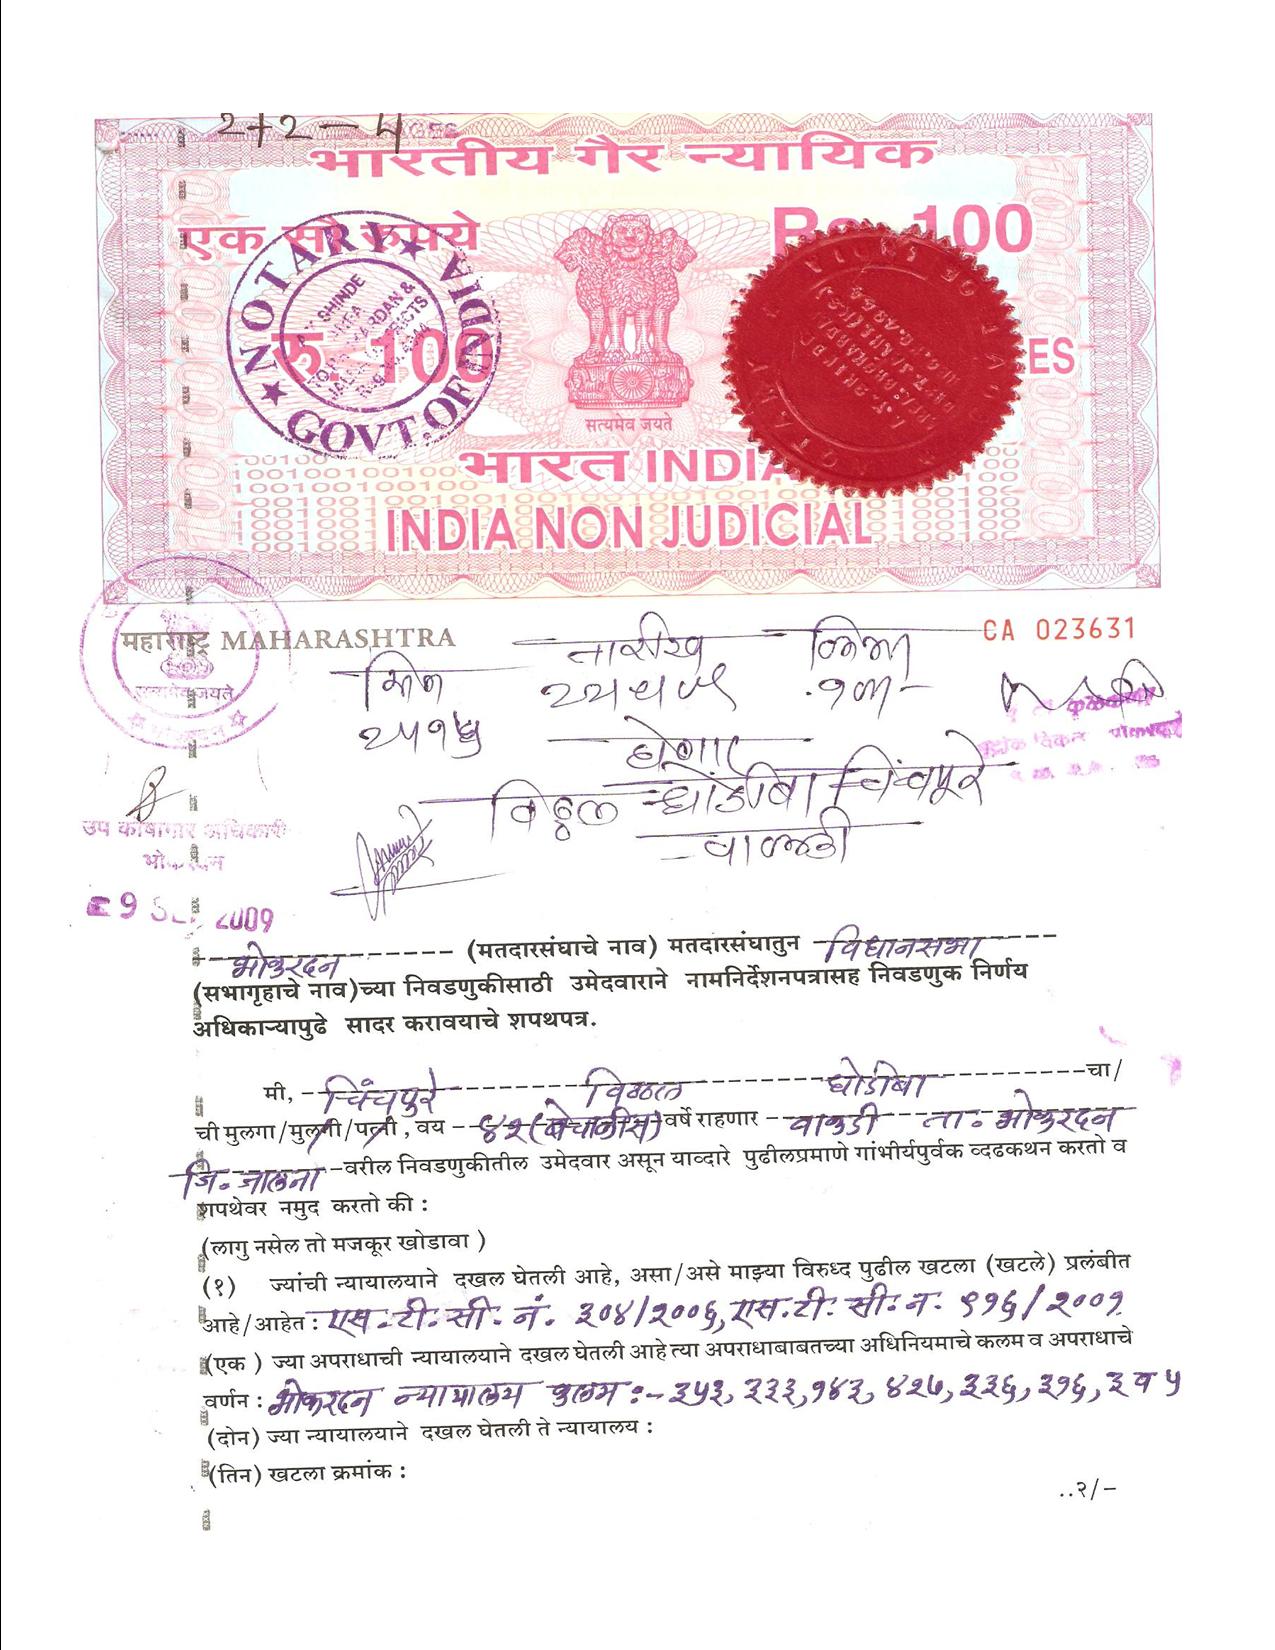 2+2-4
भारतीय गैर न्यायिक
एक सौ रुपये
Rs. 100
रु. 100
सत्यमेव जयते
भारत INDIA
INDIA NON JUDICIAL
NOTARY
GOVT. OF INDIA
SHINDE
महाराष्ट्र MAHARASHTRA
CA 023631
तारीख
घेणार
विठ्ठल धोंडीबा चिंचपुरे
उप कोषागार अधिकारी
भोकरदन
2009
भोकरदन (मतदारसंघाचे नाव) मतदारसंघातुन विधानसभा
(सभागृहाचे नाव)च्या निवडणुकीसाठी उमेदवाराने नामनिर्देशनपत्रासह निवडणुक निर्णय
अधिकाऱ्यापुढे सादर करावयाचे शपथपत्र.
मी, चिंचपुरे विठ्ठल धोंडीबा चा/
ची मुलगा/मुलगी/पत्नी, वय ४२ (बेचाळीस) वर्षे राहणार वाकडी ता. भोकरदन
जि. जालना वरील निवडणुकीतील उमेदवार असून याव्दारे पुढीलप्रमाणे गांभीर्यपुर्वक व्दढकथन करतो व
शपथेवर नमुद करतो की :
(लागु नसेल तो मजकूर खोडावा )
(१) ज्यांची न्यायालयाने दखल घेतली आहे, असा/असे माझ्या विरुध्द पुढील खटला (खटले) प्रलंबीत
आहे/आहेत : एस. टी. सी. नं. ३०४/२००६, एस. टी. सी. न. ९१६/२००१
(एक ) ज्या अपराधाची न्यायालयाने दखल घेतली आहे त्या अपराधाबाबतच्या अधिनियमाचे कलम व अपराधाचे
वर्णन : भोकरदन न्यायालय कलम :- ३५३, ३३३, १४३, ४२७, ३३६, ३१६, ३ व ५
(दोन) ज्या न्यायालयाने दखल घेतली ते न्यायालय :
(तिन) खटला क्रमांक :
..२/-